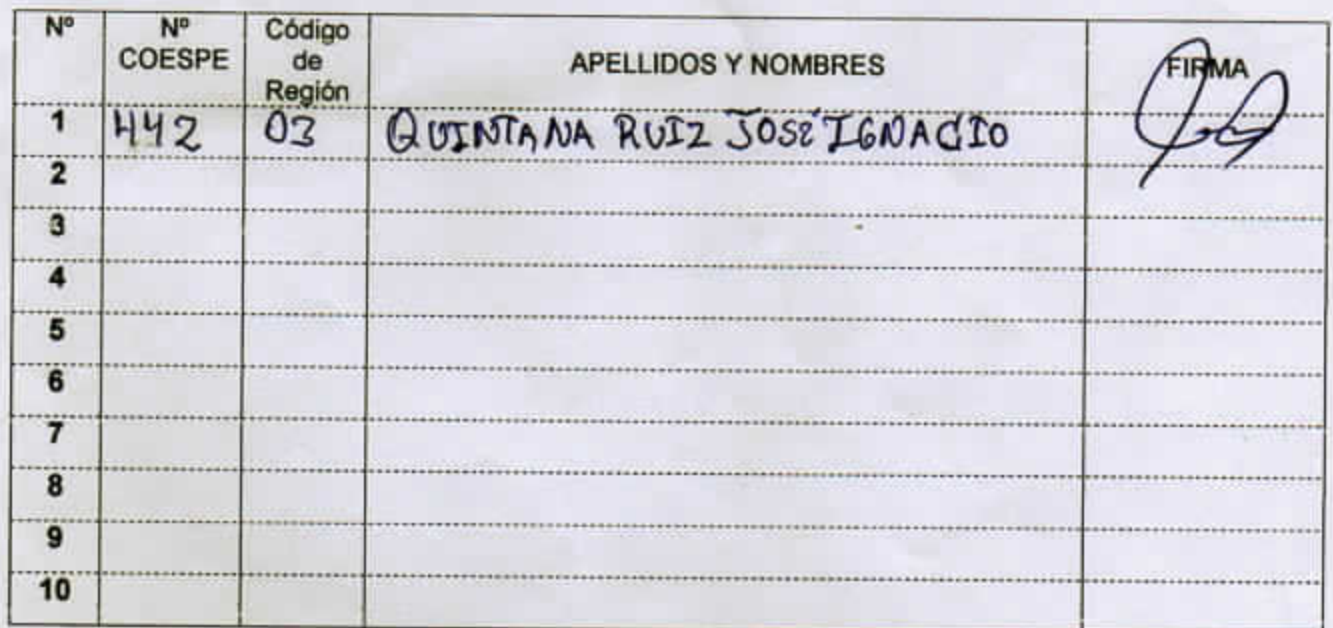 Nº Nº COESPE Código de Región APELLIDOS Y NOMBRES FIRMA
1 442 03 QUINTANA RUIZ JOSÉ IGNACIO
2
3
4
5
6
7
8
9
10